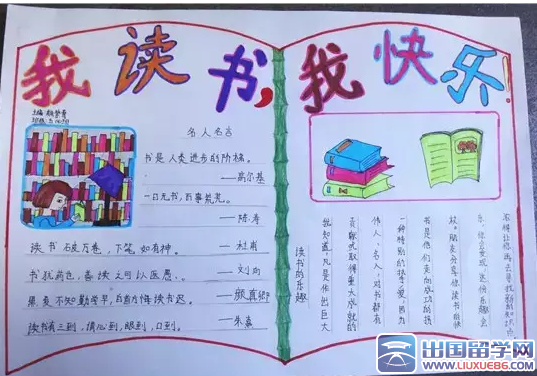 我读书,我快乐!
名人名言
书是人类进步的阶梯。
——高尔基
一日无书,百事荒芜。
——陈寿
读书破万卷,下笔如有神。
——杜甫
书犹药也,善读之可以医愚。
——刘向
黑发不知勤学早,白首方悔读书迟。
——颜真卿
读书有三到,谓心到,眼到,口到。
——朱熹
读书的乐趣
就知道,凡是作出巨大
贡献或取得重大成就的
伟人、名人,对书都有
一种特别的挚爱,因为
书是他们走向成功的拐
杖。朋友分享你读书的快
乐,你会发现,这份乐趣会
出国留学网
www.liuxue86.com